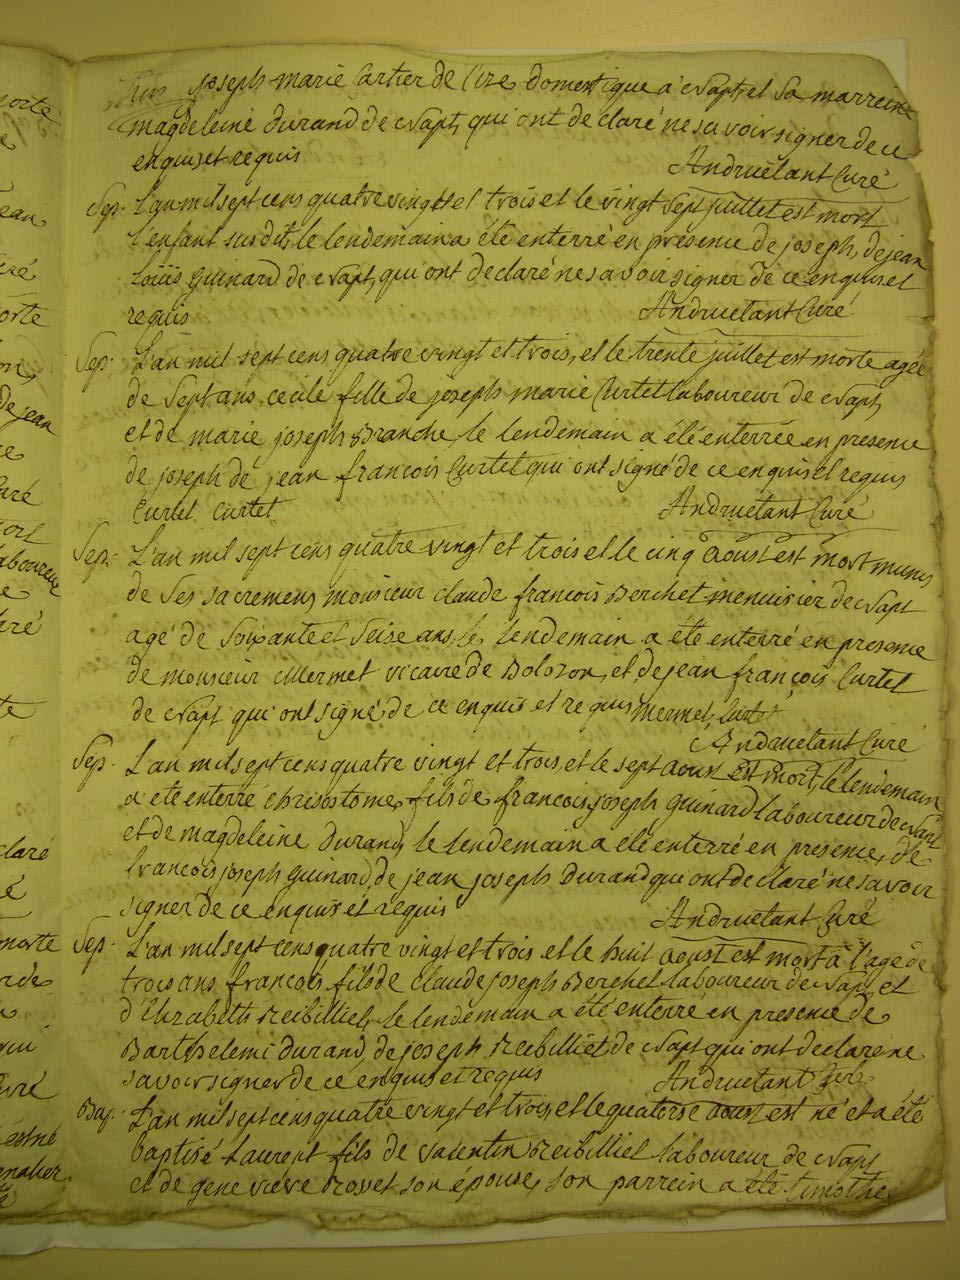 joseph marie Cartier de l'ize domestique a' Napt, et sa marreine
magdeleine durand de Napt, qui ont de claré ne savoir signer de ce
enquis et requis Andruetant Curé
Sep. L'an mil sept cens quatre vingt et trois et le vingt sept juillet est mort
l'enfant susdit, le lendemain a été enterré en presence de joseph, de jean
loüis guinard de Napt, qui ont declaré ne savoir signer de ce enquis et
requis Andruetant Curé
Sep. L'an mil sept cens quatre vingt et trois, et le trente juillet est morte agée
de sept ans cecile fille de joseph marie Curtet laboureur de Napt,
et de marie joseph Branche, le lendemain a été enterrée en presence
de joseph de jean françois Curtet qui ont signé de ce enquis et requis
Curtet Curtet Andruetant Curé
Sep. L'an mil sept cens quatre vingt et trois et le cinq aoust est mort munis
de ses sacremens monsieur claude françois Berchet menuisier de Napt
agé de soixante et seise ans, le lendemain a été enterré en presence
de monsieur Mermet vicaire de Bolozon, et de jean françois Curtet
de Napt qui ont signé de ce enquis et requis mermet, Curtet
Andruetant Curé
Sep. L'an mil sept cens quatre vingt et trois, et le sept aoust est mort, le lendemain
a été enterré chrisostome, fils de françois joseph guinard laboureur de Napt
et de magdeleine durand, le lendemain a été enterré en presence, de
françois joseph guinard, de jean joseph Durand qui ont declaré ne savoir
signer de ce enquis et requis Andruetant Curé
Sep. L'an mil sept cens quatre vingt et trois et le huit aoust est mort à l'age de
trois ans françois fils de claude joseph Berchet laboureur de Napt, et
d'Elizabeth Reibilliet, le lendemain a été enterré en presence de
Barthelemi durand, de joseph Reibilliet de Napt qui ont declaré ne
savoir signer de ce enquis et requis Andruetant Curé
Bap. L'an mil sept cens quatre vingt et trois, et le quatorse aoust est né et a été
baptisé Laurent fils de valentin Reibilliet laboureur de Napt
et de genevieve Rosset son épouse, son parrein a été timothée